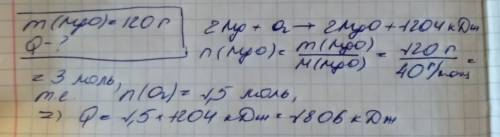 m(MgO)=120 г
Q-?
2Mg + O₂ → 2MgO + 1204 кДж
n(MgO) = m(MgO)/M(MgO) = 120 г/40 г/моль =
= 3 моль,
т.е n(O₂) = 1,5 моль,
=> Q = 1,5 × 1204 кДж = 1806 кДж